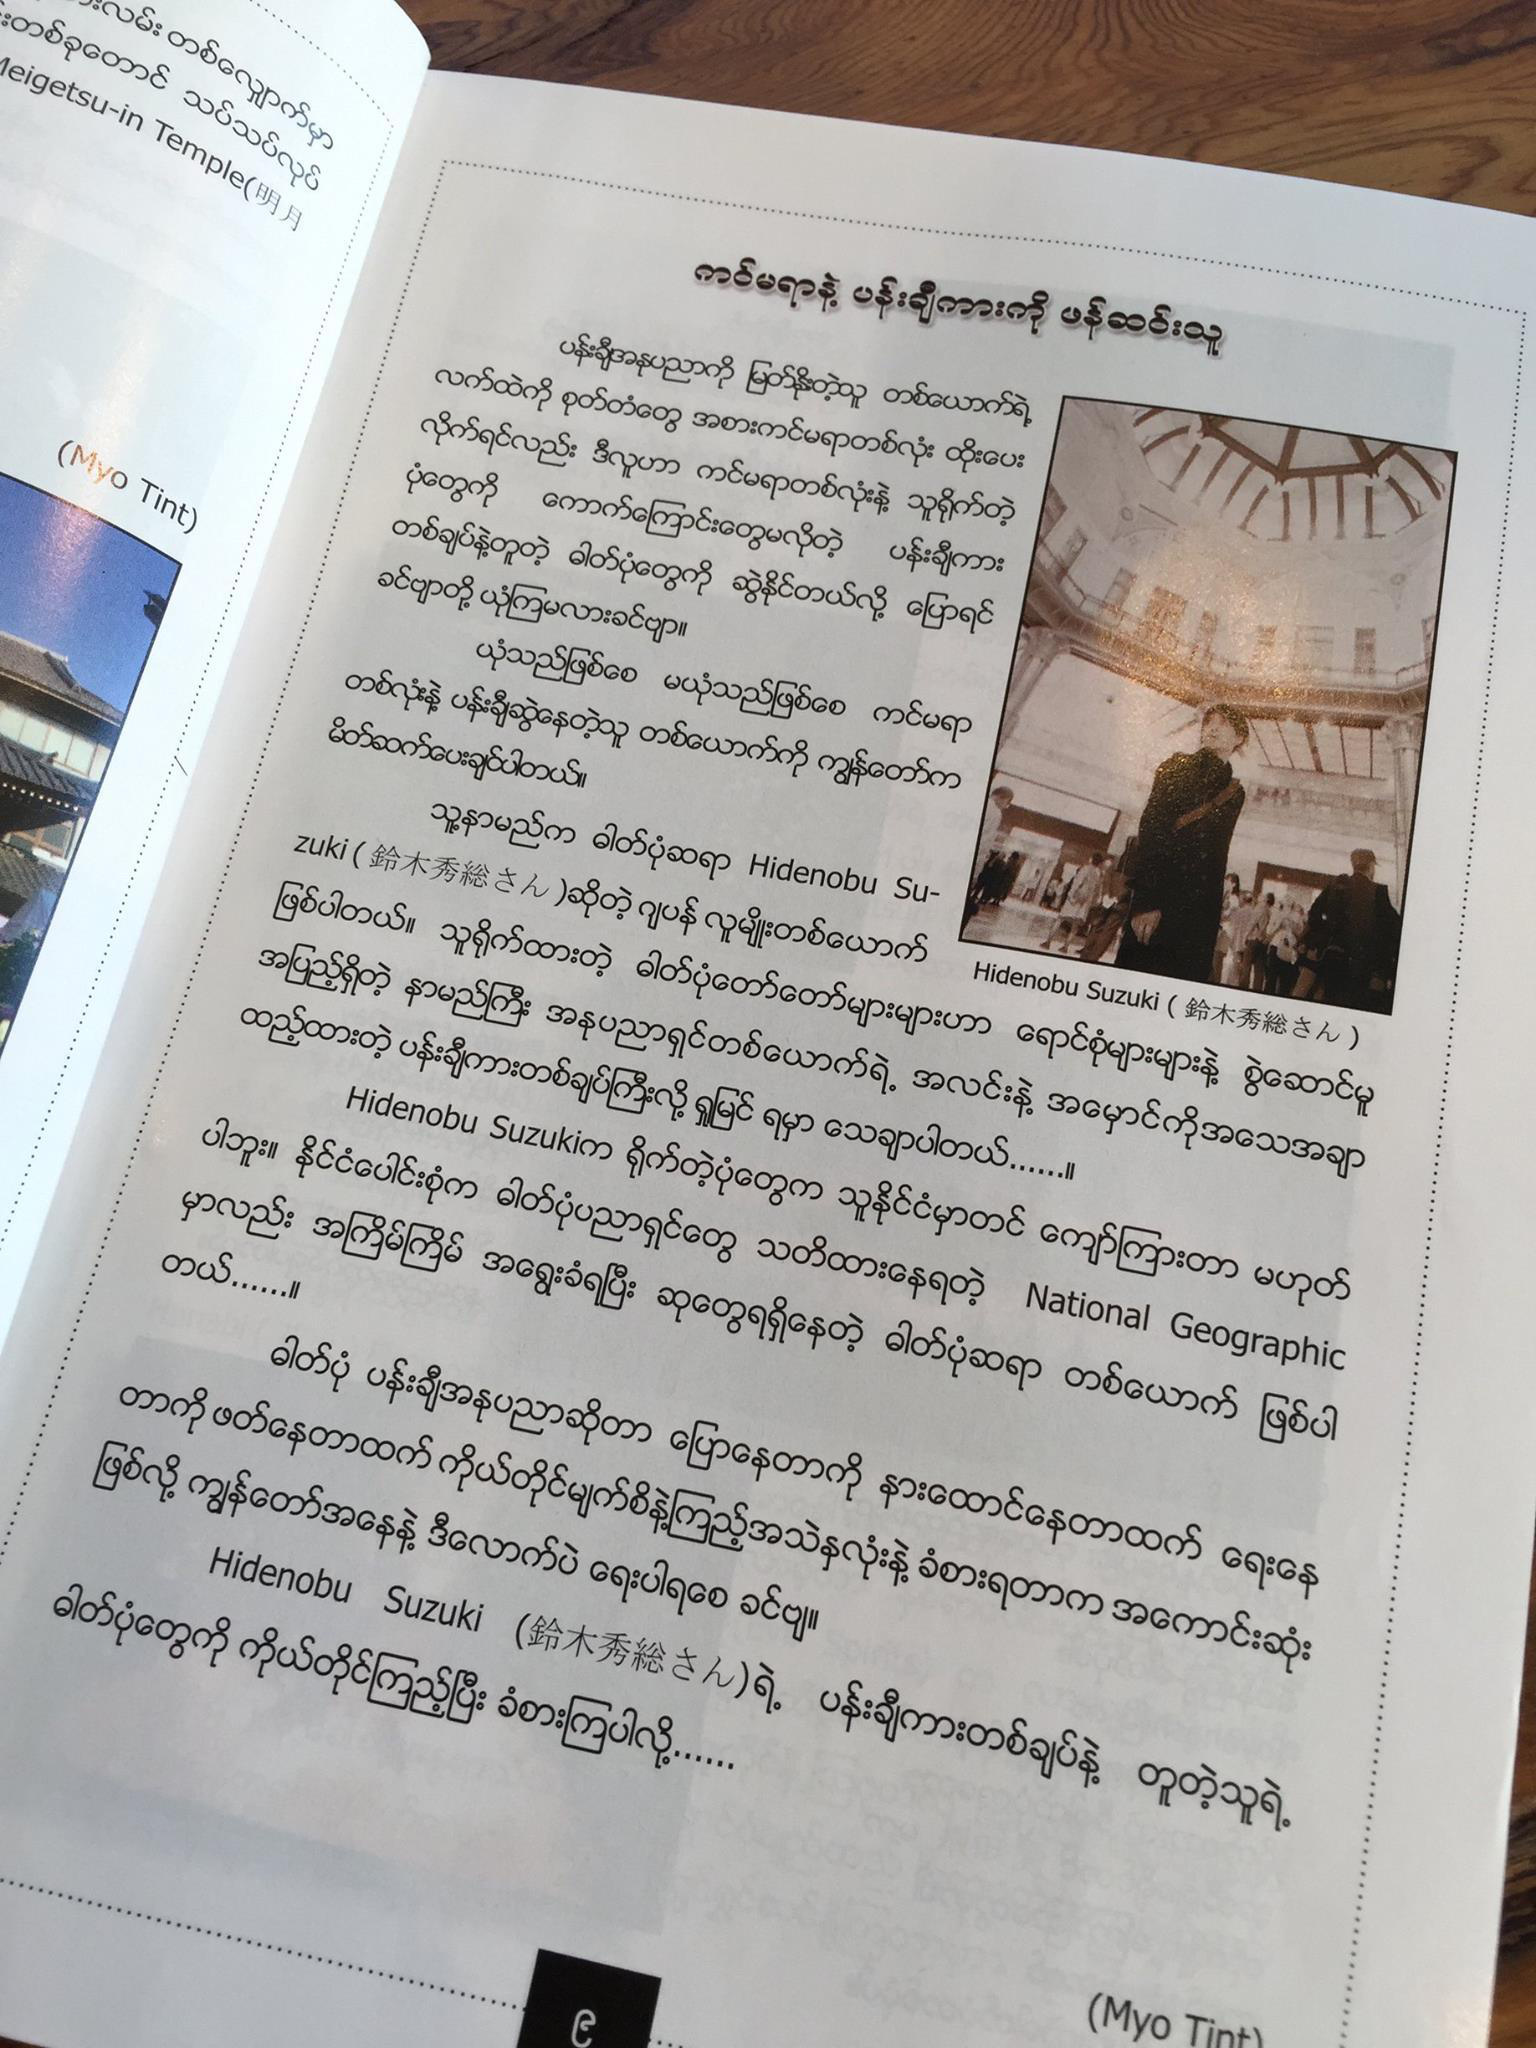 တစ်လျှောက်မှာ
တစ်ခုတောင် သပ်သပ်လုပ်
Meigetsu-in Temple(明月
(Myo Tint)
ကင်မရာနဲ့ ပန်းချီကားကို ဖန်ဆင်းသူ
ပန်းချီအနုပညာကို မြတ်နိုးတဲ့သူ တစ်ယောက်ရဲ့
လက်ထဲကို စုတ်တံတွေ အစားကင်မရာတစ်လုံး ထိုးပေး
လိုက်ရင်လည်း ဒီလူဟာ ကင်မရာတစ်လုံးနဲ့ သူရိုက်တဲ့
ပုံတွေကို ကောက်ကြောင်းတွေမလိုတဲ့ ပန်းချီကား
တစ်ချပ်နဲ့တူတဲ့ ဓါတ်ပုံတွေကို ဆွဲနိုင်တယ်လို့ ပြောရင်
ခင်ဗျာတို့ ယုံကြမလားခင်ဗျာ။
ယုံသည်ဖြစ်စေ မယုံသည်ဖြစ်စေ ကင်မရာ
တစ်လုံးနဲ့ ပန်းချီဆွဲနေတဲ့သူ တစ်ယောက်ကို ကျွန်တော်က
မိတ်ဆက်ပေးချင်ပါတယ်။
သူ့နာမည်က ဓါတ်ပုံဆရာ Hidenobu Su-
zuki ( 鈴木秀総さん )ဆိုတဲ့ ဂျပန် လူမျိုးတစ်ယောက်
ဖြစ်ပါတယ်။ သူရိုက်ထားတဲ့ ဓါတ်ပုံတော်တော်များများဟာ ရောင်စုံများများနဲ့ စွဲဆောင်မှု
အပြည့်ရှိတဲ့ နာမည်ကြီး အနုပညာရှင်တစ်ယောက်ရဲ့ အလင်းနဲ့ အမှောင်ကိုအသေအချာ
ထည့်ထားတဲ့ ပန်းချီကားတစ်ချပ်ကြီးလို့ ရှုမြင် ရမှာ သေချာပါတယ်......။
Hidenobu Suzuki ( 鈴木秀総さん )
Hidenobu Suzukiက ရိုက်တဲ့ပုံတွေက သူနိုင်ငံမှာတင် ကျော်ကြားတာ မဟုတ်
ပါဘူး။ နိုင်ငံပေါင်းစုံက ဓါတ်ပုံပညာရှင်တွေ သတိထားနေရတဲ့ National Geographic
မှာလည်း အကြိမ်ကြိမ် အရွေးခံရပြီး ဆုတွေရရှိနေတဲ့ ဓါတ်ပုံဆရာ တစ်ယောက် ဖြစ်ပါ
တယ်......။
ဓါတ်ပုံ ပန်းချီအနုပညာဆိုတာ ပြောနေတာကို နားထောင်နေတာထက် ရေးနေ
တာကို ဖတ်နေတာထက် ကိုယ်တိုင်မျက်စိနဲ့ကြည့်အသဲနှလုံးနဲ့ ခံစားရတာက အကောင်းဆုံး
ဖြစ်လို့ ကျွန်တော်အနေနဲ့ ဒီလောက်ပဲ ရေးပါရစေ ခင်ဗျ။
Hidenobu Suzuki (鈴木秀総さん)ရဲ့ ပန်းချီကားတစ်ချပ်နဲ့ တူတဲ့သူရဲ့
ဓါတ်ပုံတွေကို ကိုယ်တိုင်ကြည့်ပြီး ခံစားကြပါလို့......
(Myo Tint)
၉